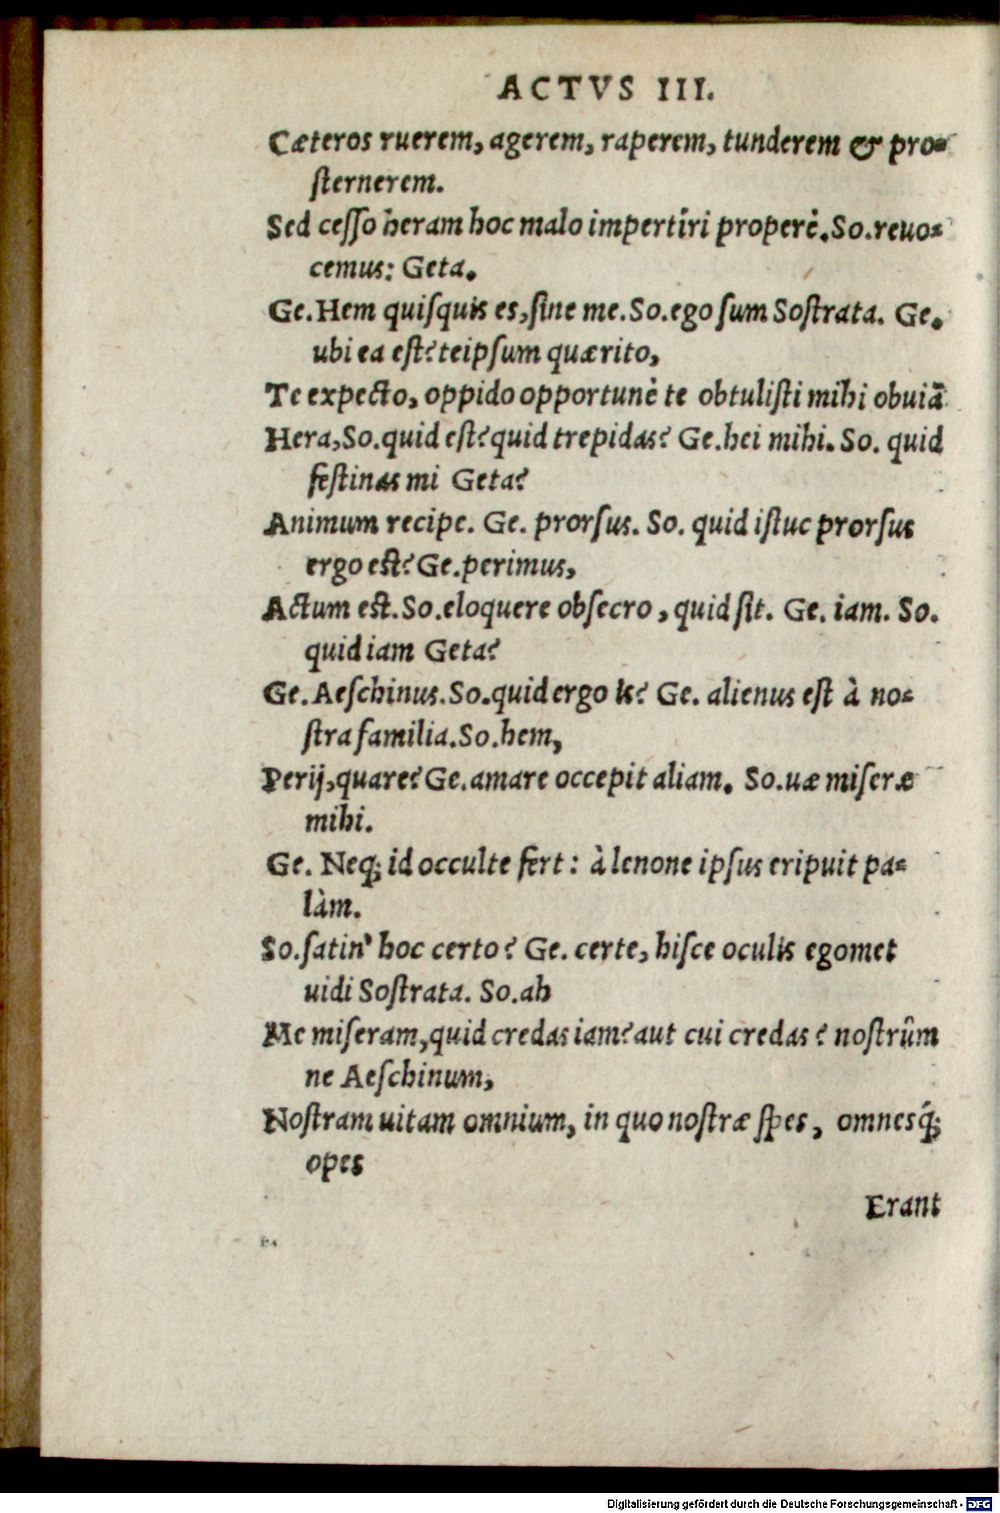 ACTVS III.
Cæteros ruerem, agerem, raperem, tunderem & pro-
sternerem.
Sed cesso heram hoc malo impertîri properè. So. reuo-
cemus: Geta.
Ge. Hem quisquis es, sine me. So. ego sum Sostrata. Ge.
ubi ea est? teipsum quærito,
Te expecto, oppido opportunè te obtulisti mihi obuiã
Hera, So. quid est? quid trepidas? Ge. hei mihi. So. quid
festinas mi Geta?
Animum recipe. Ge. prorsus. So. quid istuc prorsus
ergo est? Ge. perimus,
Actum est. So. eloquere obsecro, quid sit. Ge. iam. So.
quid iam Geta?
Ge. Aeschinus. So. quid ergo is? Ge. alienus est à no-
stra familia. So. hem,
Perij, quare? Ge. amare occepit aliam. So. uæ miseræ
mihi.
Ge. Neq; id occulte fert: à lenone ipsus eripuit pa-
làm.
So. satin' hoc certo? Ge. certe, hisce oculis egomet
uidi Sostrata. So. ah
Me miseram, quid credas iam? aut cui credas? nostrûm
ne Aeschinum,
Nostram uitam omnium, in quo nostræ spes, omnesq́;
opes
Erant
Digitalisierung gefördert durch die Deutsche Forschungsgemeinschaft - DFG